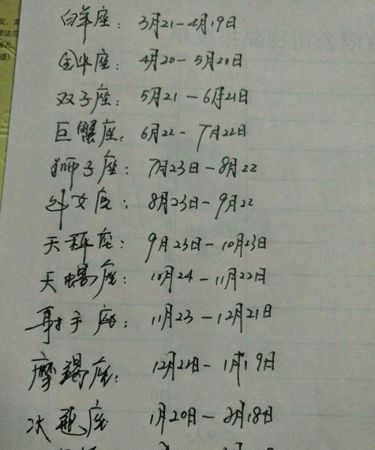 白羊座：3月21-4月19日
金牛座：4月20-5月20日
双子座：5月21-6月21日
巨蟹座：6月22-7月22日
狮子座：7月23日-8月22
处女座：8月23日-9月22
天秤座：9月23日-10月23日
天蝎座：10月24-11月22日
射手座：11月23-12月21日
摩羯座：12月22日-1月19日
水瓶座 1月20日-2月18日